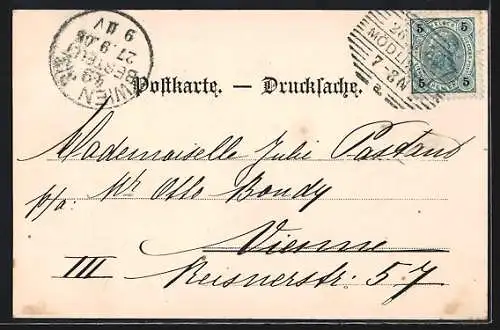 WIEN
BESTELLT
27.9.0
9 IV
26
MÖDLIN
7-8N
a
5 5
5 5
Postkarte. — Drucksache.
Mademoiselle Julie
p/a: Mr Otto Bondy
Vienne
III Reisnerstr. 57